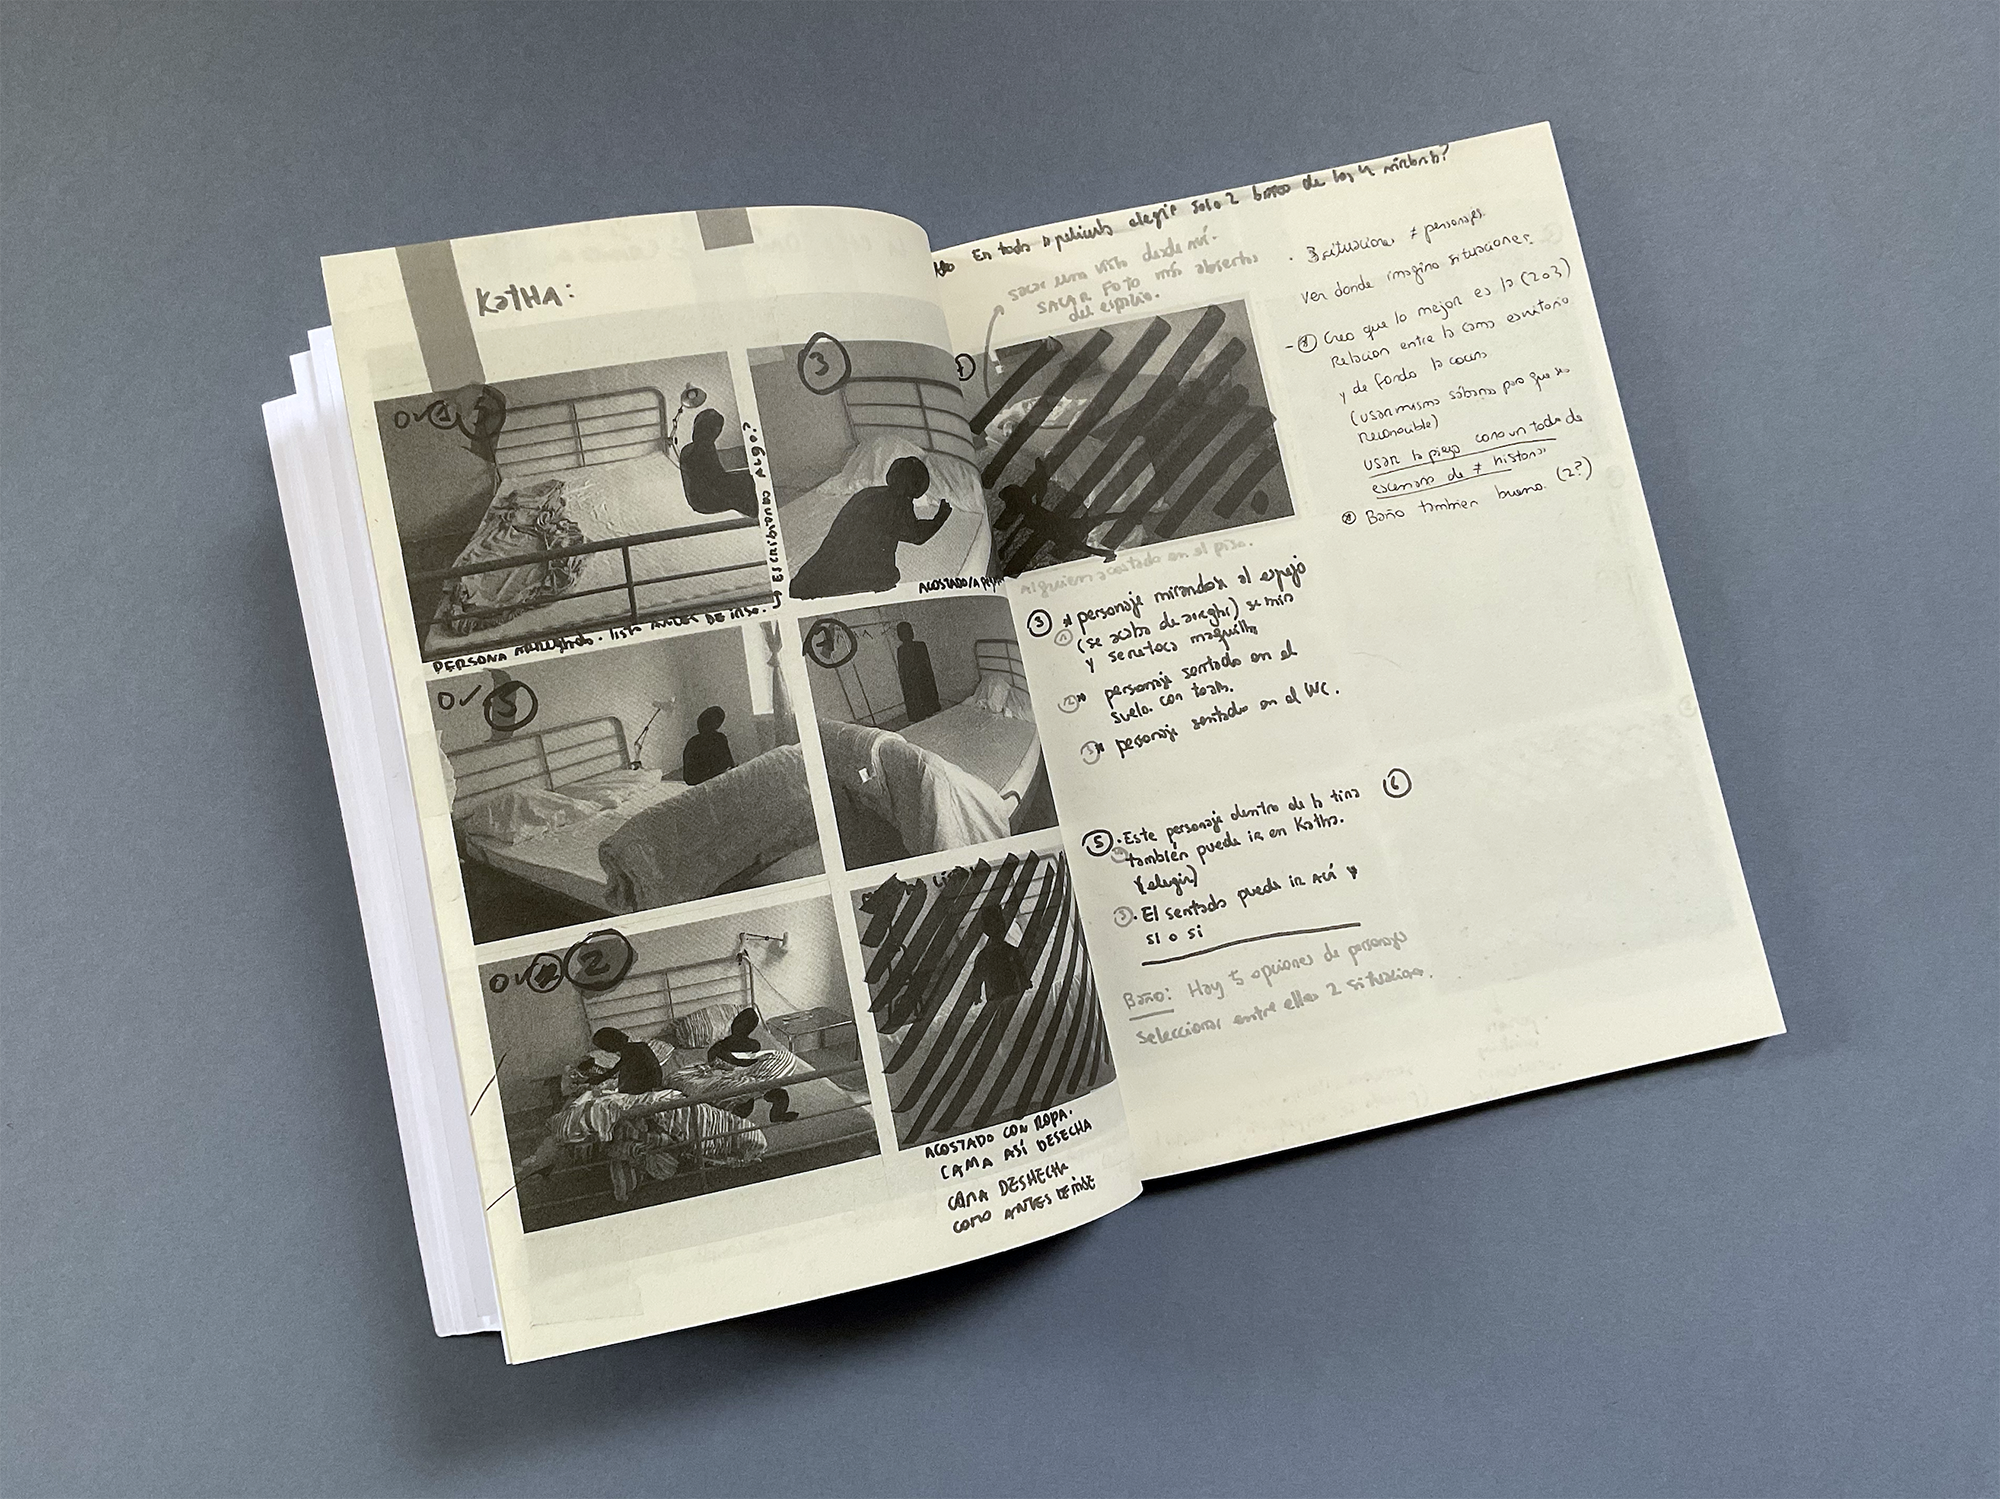 KatHA:
3
PERSONA ARREGLADA. lista ANTES DE IRSE.
Escribiendo algo?
ACOSTADO/A
5
2
ACOSTADO CON ROPA.
CAMA ASÍ DESECHA
CAMA DESHECHA
COMO ANTES DE IRSE
En toda la película elegir solo 2 baños de los 4 airbnb?
sacar una vista desde aquí.
SACAR FOTO más abierta
del espacio.
Alguien acostado en el piso.
3 personaje mirandose al espejo
(se acaba de arreglar) se mira
y se retoca maquillaje
2 personaje sentado en el
suelo con toalla.
3 personaje sentado en el WC.
5 · Este personaje dentro de la tina
también puede ir en Katha.
(elegir)
3 · El sentado puede ir ACÍ
si o si
Baño: Hay 5 opciones de personajes
seleccionar entre ellas 2 situaciones.
· 3 situaciones ≠ personajes.
Ver donde imagino situaciones.
- Creo que la mejor es la (2 o 3)
Relacion entre la cama escritorio
y de fondo la cocina
(usar misma sábanas para que sea
reconocible)
usar la pieza como un todo de
escenario de ≠ historias
Baño tambien bueno. (2?)
6